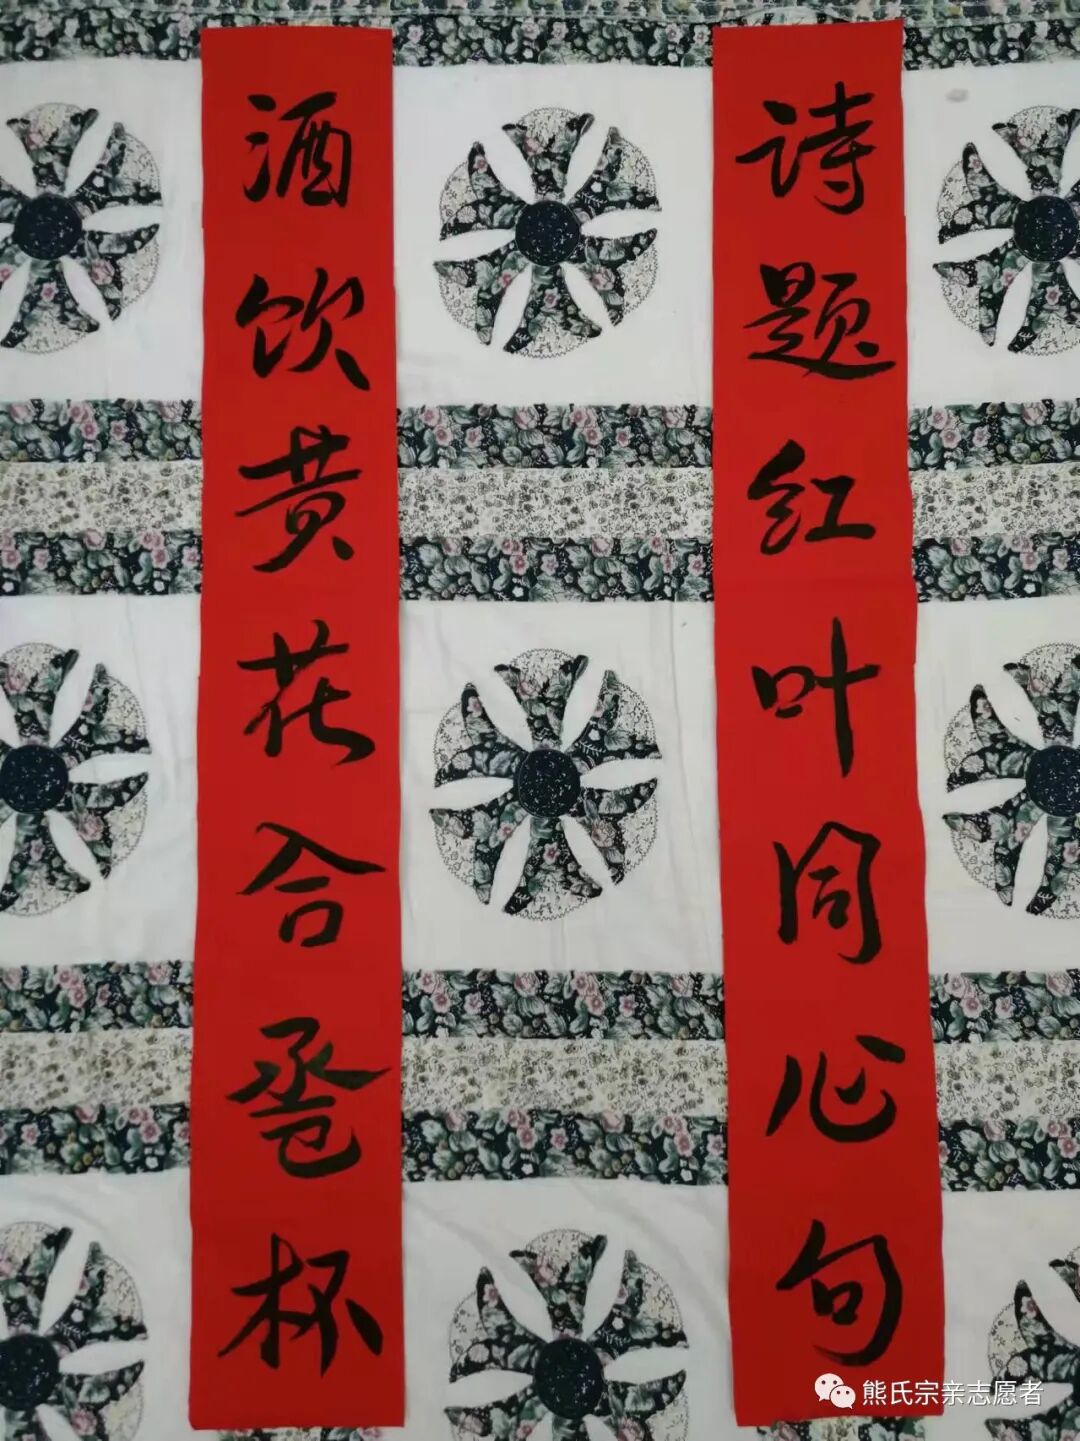 诗题红叶同心句
酒饮黄花合卺杯
熊氏宗亲志愿者